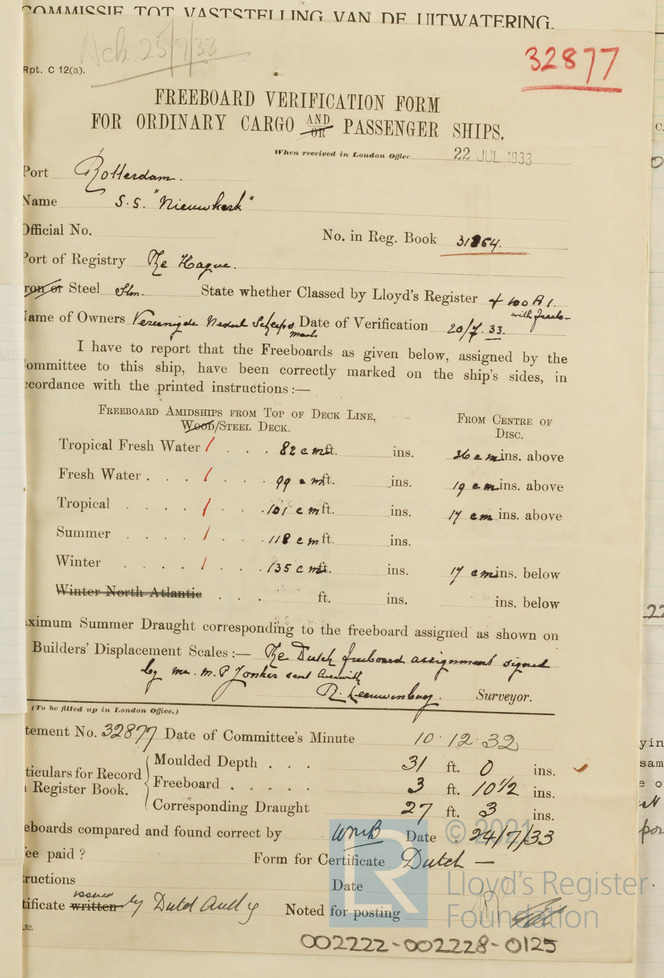 COMMISSIE TOT VASTSTELLING VAN DE UITWATERING.
Ack 25/7/33
32877
Rpt. C 12(a).
FREEBOARD VERIFICATION FORM
FOR ORDINARY CARGO AND/OR PASSENGER SHIPS.
When received in London Office 22 JUL 1933
Port Rotterdam.
Name S.S. "Nieuwkerk"
Official No. No. in Reg. Book 31864.
Port of Registry The Hague.
Iron or Steel Stm. State whether Classed by Lloyd's Register + 100 A1. with freebo-
Name of Owners Vereenigde Nederl Scheeps maats Date of Verification 20/7.33.
I have to report that the Freeboards as given below, assigned by the
Committee to this ship, have been correctly marked on the ship's sides, in
accordance with the printed instructions:—
FREEBOARD AMIDSHIPS FROM TOP OF DECK LINE, FROM CENTRE OF
WOOD/STEEL DECK. DISC.
Tropical Fresh Water / . . . 82 cm ft. ins. 36 cm ins. above
Fresh Water . . . / . . . 99 cm ft. ins. 19 cm ins. above
Tropical . . . . / . . . 101 cm ft. ins. 17 cm ins. above
Summer . . . . / . . . 118 cm ft. ins.
Winter . . . . / . . . 135 cm ft. ins. 17 cm ins. below
Winter North Atlantic . . . ft. ins. ins. below
ximum Summer Draught corresponding to the freeboard assigned as shown on
Builders' Displacement Scales:— The Dutch freeboard assignment signed
by mr. M. P. Jonker sent herewith
R. Leeuwenburg. Surveyor.
(To be filled up in London Office.)
tement No. 32877 Date of Committee's Minute 10.12.32
ticulars for Record Register Book.
Moulded Depth . . . 31 ft. 0 ins.
Freeboard . . . . . 3 ft. 10 1/2 ins.
Corresponding Draught 27 ft. 3 ins.
eboards compared and found correct by WMB Date 24/7/33
ee paid ? Form for Certificate Dutch —
ructions Date
tificate written issued by Dutch Auth'y Noted for posting
© 2021
LR
Lloyd's Register
Foundation
002222-002228-0125